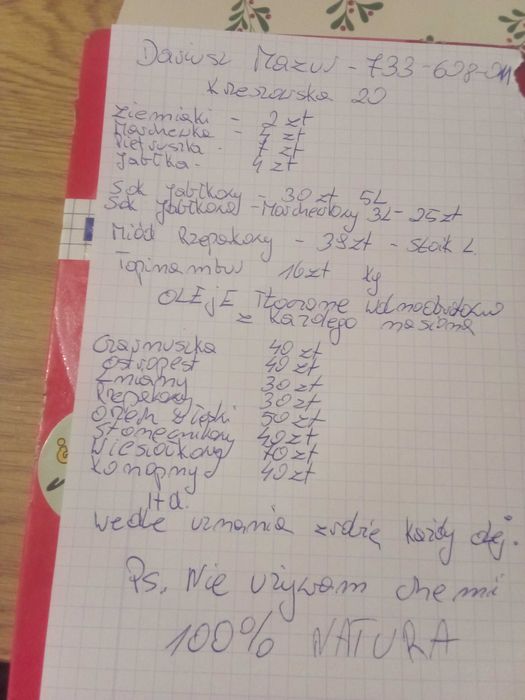 Dariusz Mazur - 733-608-011
Krzeszowska 20
Ziemiaki - 2 zł
Marchewka - 2 zł
Pietruszka - 7 zł
Jabłka - 4 zł
Sok Jabłkowy - 30 zł 5L
Sok Jabłkowo - Marchewkowy 3L - 25 zł
Miód Rzepakowy - 38 zł - Słoik L.
Topinambur 16 zł kg
OLEJE Tłoczone wolnoobrotowo
z każdego nasiona
Czarnuszka 40 zł
Ostropest 40 zł
Lniany 30 zł
Rzepakowy 30 zł
Orzech Włoski 50 zł
Słonecznikowy 40 zł
Wiesiołkowy 70 zł
Konopny 40 zł
Itd.
Wedle uznania zrobię każdy olej.
Ps. Nie używam chemi
100% NATURA